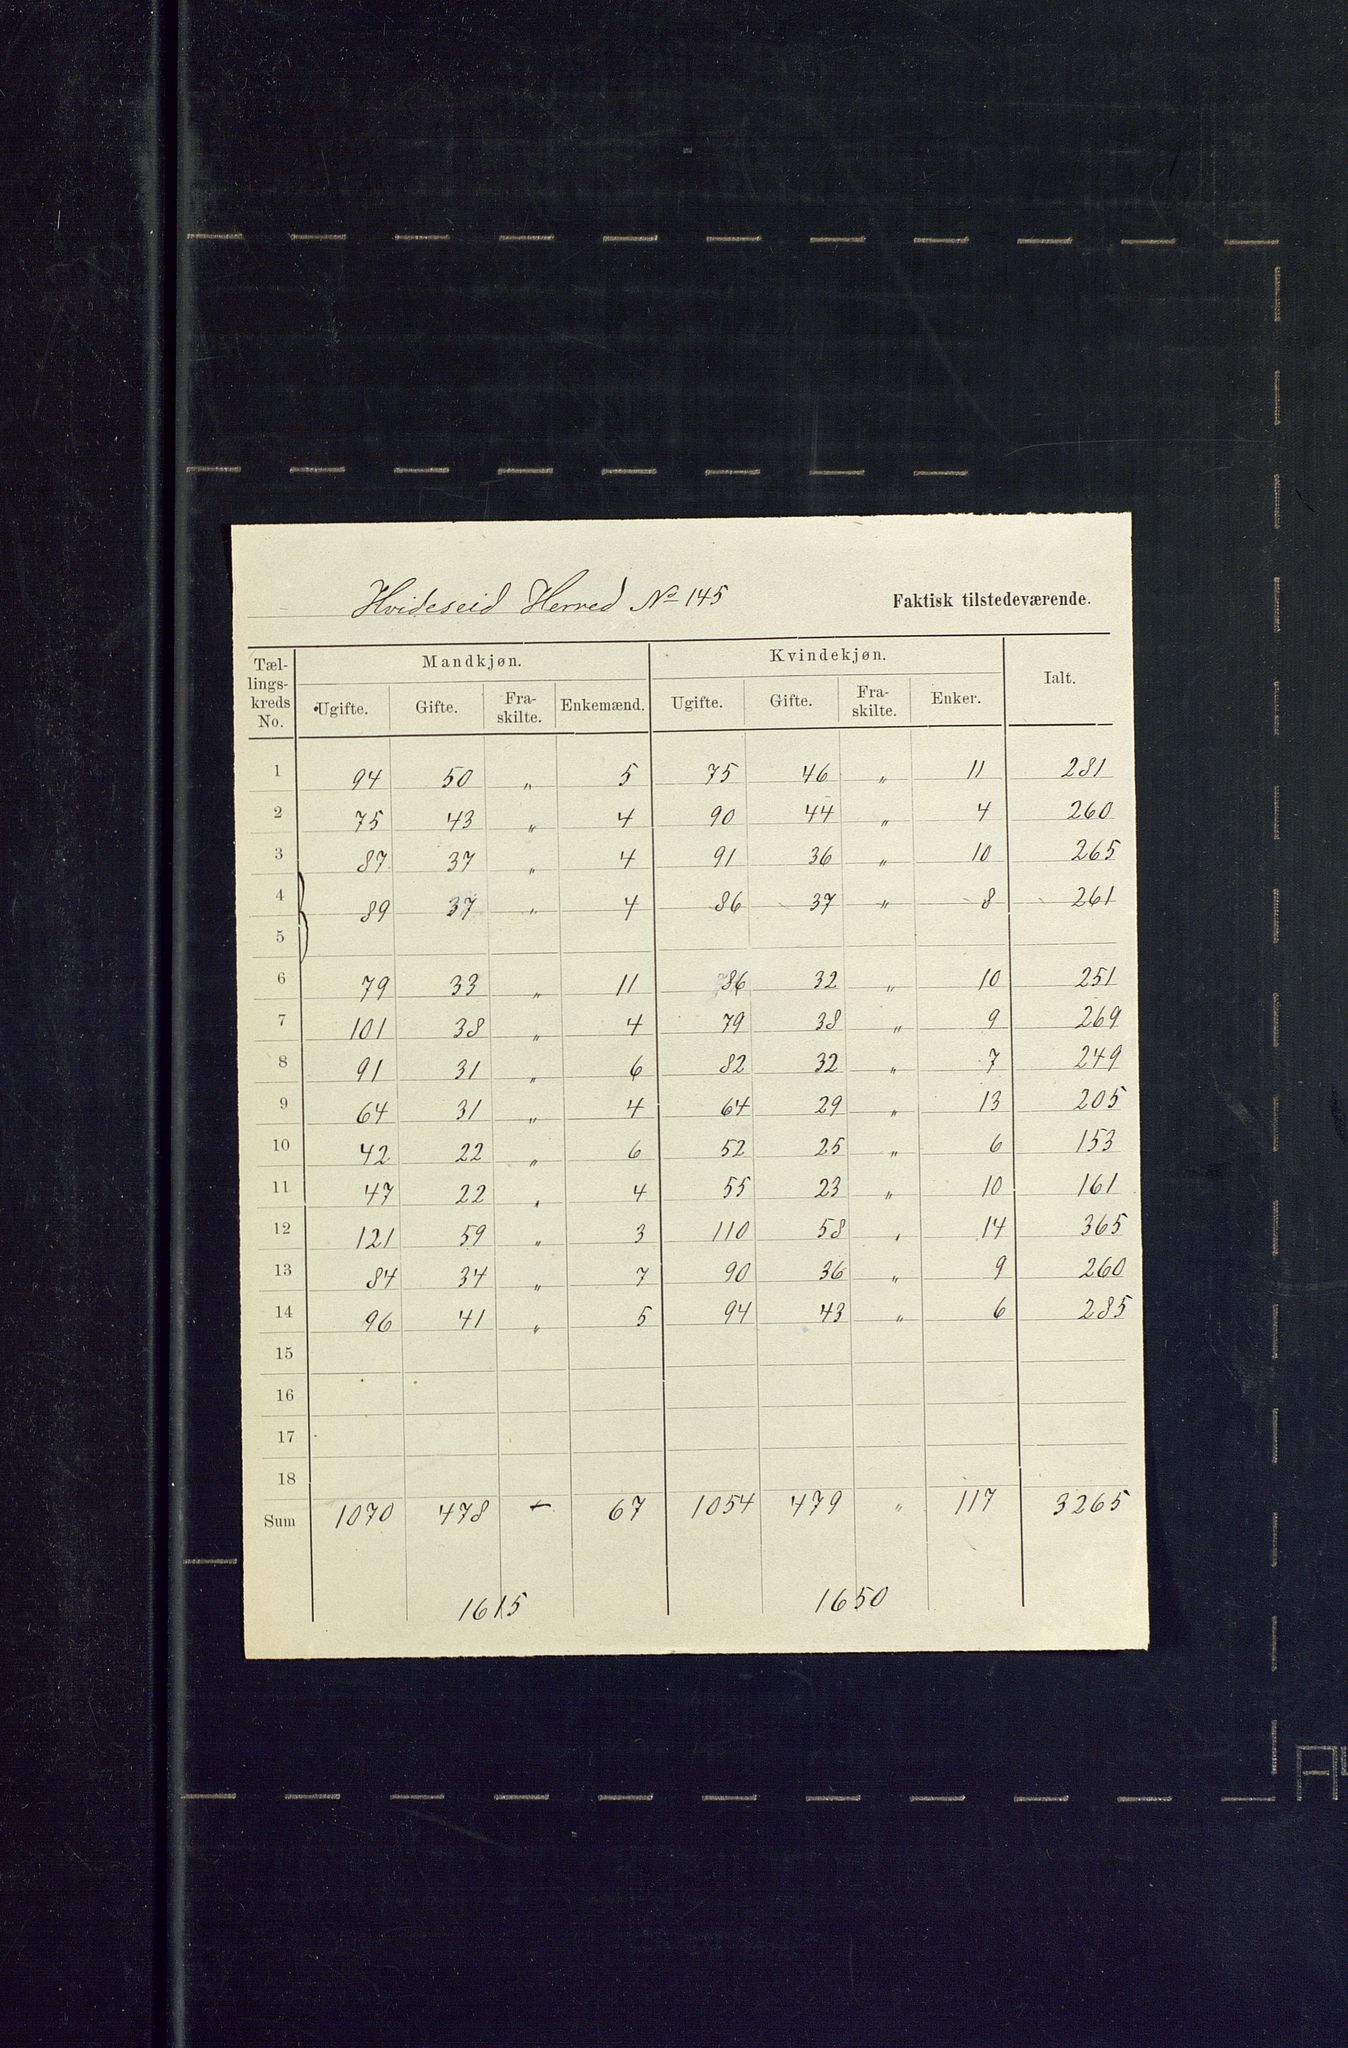 Hvideseid Herred No 145 Faktisk tilstedeværende.
Tællingskreds No. Mandkjøn. Kvindekjøn. Ialt.
Ugifte. Gifte. Fraskilte. Enkemænd. Ugifte. Gifte. Fraskilte. Enker.
1 94 50 „ 5 75 46 „ 11 281
2 75 43 „ 4 90 44 „ 4 260
3 87 37 „ 4 91 36 „ 10 265
4 89 37 „ 4 86 37 „ 8 261
5
6 79 33 „ 11 86 32 „ 10 251
7 101 38 „ 4 79 38 „ 9 269
8 91 31 „ 6 82 32 „ 7 249
9 64 31 „ 4 64 29 „ 13 205
10 42 22 „ 6 52 25 „ 6 153
11 47 22 „ 4 55 23 „ 10 161
12 121 59 „ 3 110 58 „ 14 365
13 84 34 „ 7 90 36 „ 9 260
14 96 41 „ 5 94 43 „ 6 285
15
16
17
18
Sum 1070 478 - 67 1054 479 „ 117 3265
1615 1650